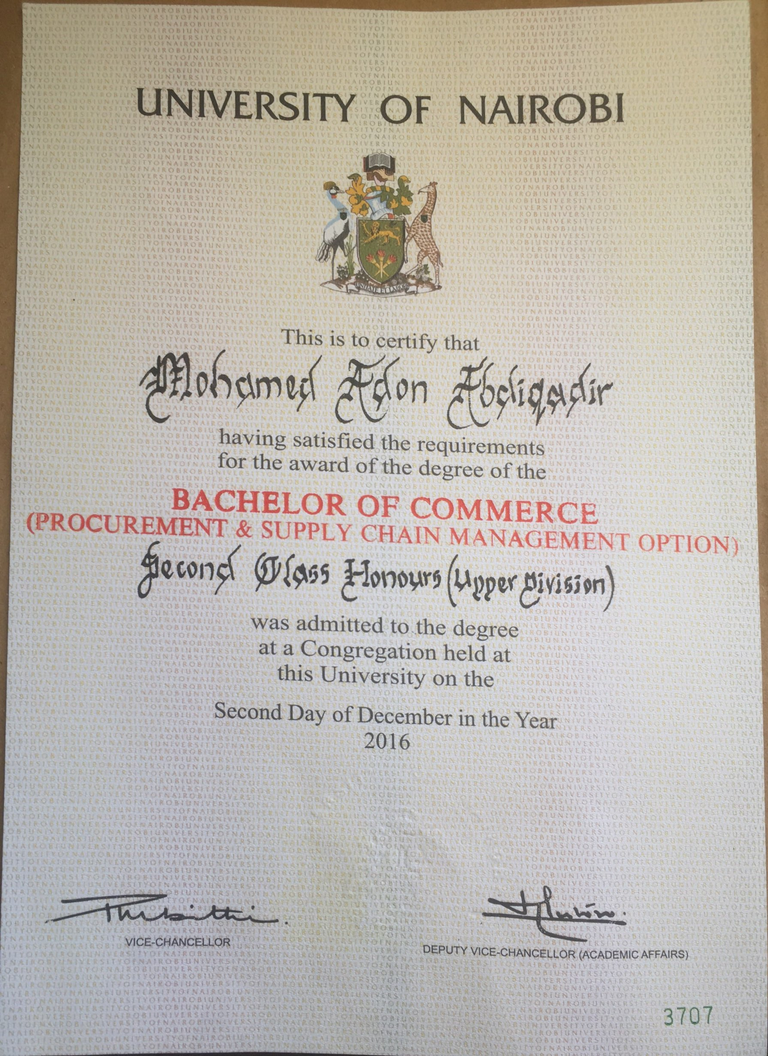 UNIVERSITY OF NAIROBI
UNITATE ET LABORE
This is to certify that
Mohamed Adon Abdiqadir
having satisfied the requirements
for the award of the degree of the
BACHELOR OF COMMERCE
(PROCUREMENT & SUPPLY CHAIN MANAGEMENT OPTION)
Second Class Honours (Upper Division)
was admitted to the degree
at a Congregation held at
this University on the
Second Day of December in the Year
2016
VICE-CHANCELLOR
DEPUTY VICE-CHANCELLOR (ACADEMIC AFFAIRS)
3707